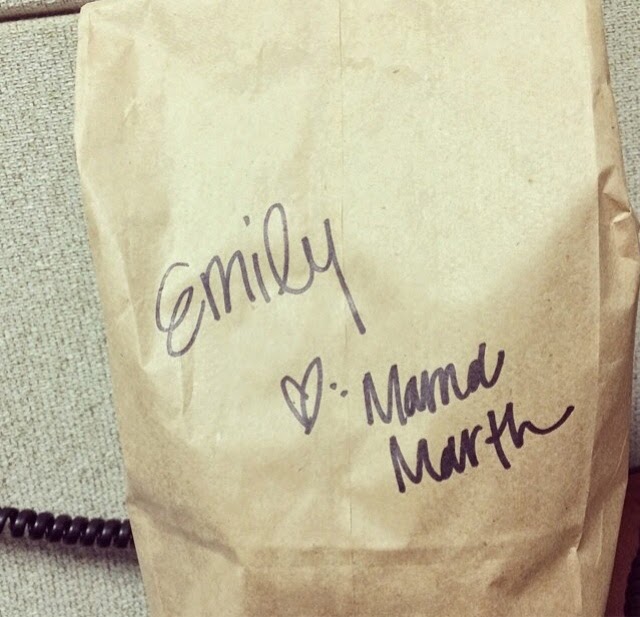 Emily
♡: Mama
Marth